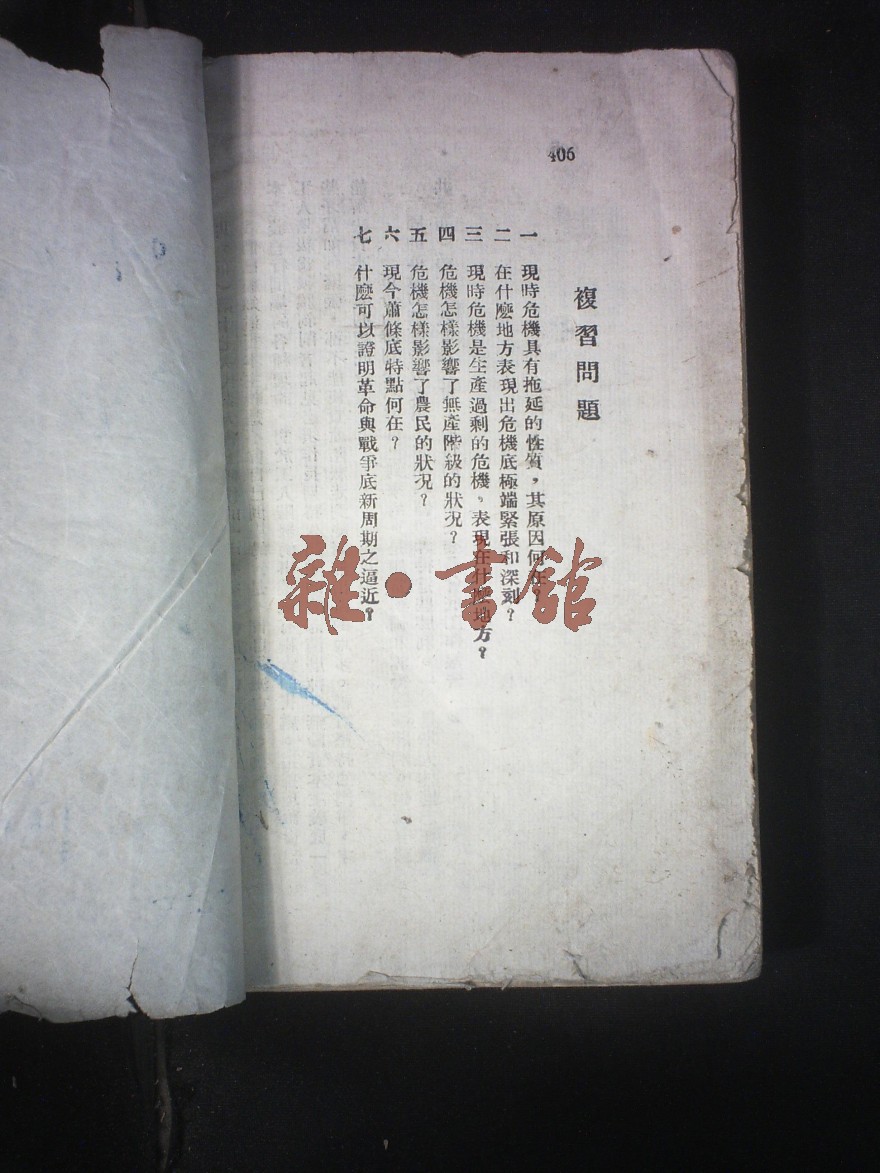 406
複習問題
一 現時危機具有拖延的性質，其原因何在？
二 在什麽地方表現出危機底極端緊張和深刻？
三 現時危機是生產過剩的危機。表現在什麽地方？
四 危機怎樣影響了無產階級的狀況？
五 危機怎樣影響了農民的狀況？
六 現今蕭條底特點何在？
七 什麽可以證明革命與戰爭底新周期之逼近？
雜·書館